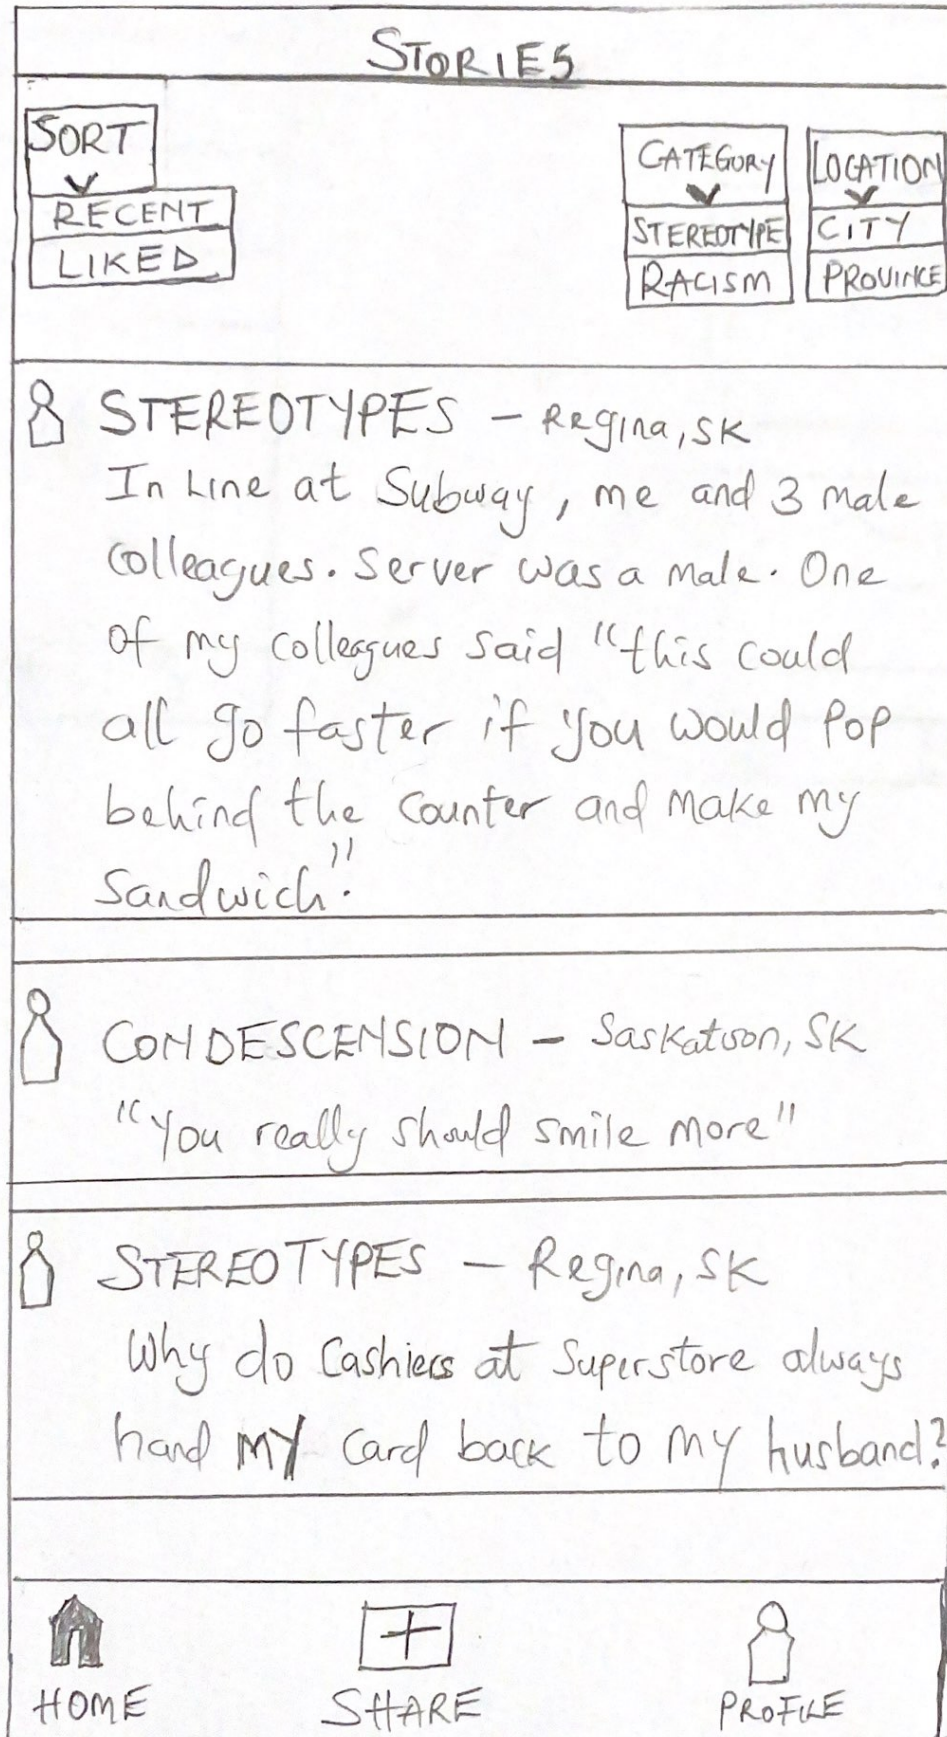 STORIES
SORT
RECENT
LIKED
CATEGORY
STEREOTYPE
RACISM
LOCATION
CITY
PROVINCE
STEREOTYPES - Regina, SK
In Line at Subway, me and 3 male
colleagues. Server was a male. One
of my colleagues said "this could
all go faster if you would pop
behind the counter and make my
Sandwich".
CONDESCENSION - Saskatoon, SK
"You really should smile more"
STEREOTYPES - Regina, SK
Why do Cashiers at Superstore always
hand MY card back to my husband?
HOME
SHARE
PROFILE